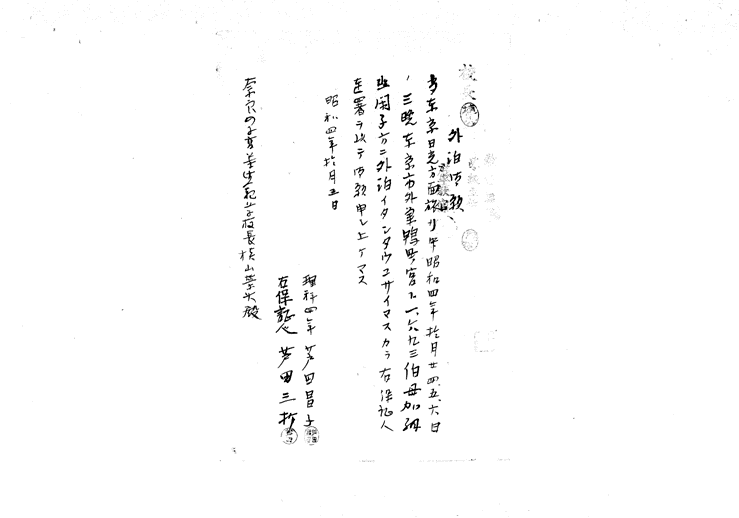 外泊御願
今東京日光方面旅行中昭和四年拾月廿四、五、六日
ノ三晩東京市外巣鴨町宮下一、六九三伯母加納
幽閑子方ニ外泊イタシタウゴザイマスカラ右保証人
連署ヲ以テ御願申シ上ゲマス
昭和四年拾月五日
理科四年 芦田昌子
右保証人 芦田三
奈良女子高等師範学校長槙山栄次殿